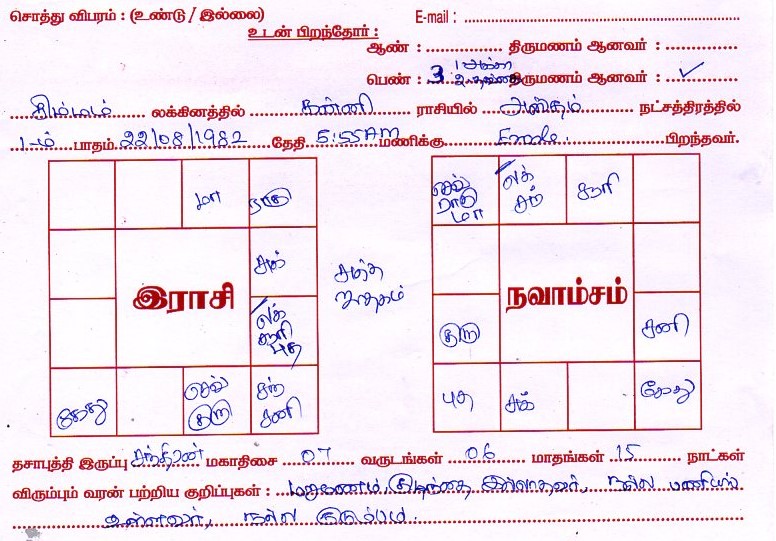 சொத்து விபரம் : (உண்டு / இல்லை) E-mail :
உடன் பிறந்தோர் :
ஆண் : திருமணம் ஆனவர் :
1 அக்கா
பெண் : 3 2 தங்கை திருமணம் ஆனவர் : ✓
சிம்மம் லக்கினத்தில் கன்னி ராசியில் அஸ்தம் நட்சத்திரத்தில்
1-ம் பாதம் 22/08/1982 தேதி 5:55AM மணிக்கு Female. பிறந்தவர்.
மா ராகு
சுக்
இராசி
லக் சூரி புத
கேது செவ் குரு சந் சனி
சுத்த ஜாதகம்
செவ் ராகு மா லக் சந் சூரி
நவாம்சம்
குரு சனி
புத சுக் கேது
தசாபுத்தி இருப்பு சந்திரன் மகாதிசை 07 வருடங்கள் 06 மாதங்கள் 15 நாட்கள்
விரும்பும் வரன் பற்றிய குறிப்புகள் : இல்லாதவர், நல்ல
உள்ளவர், நல்ல குடும்பம்.